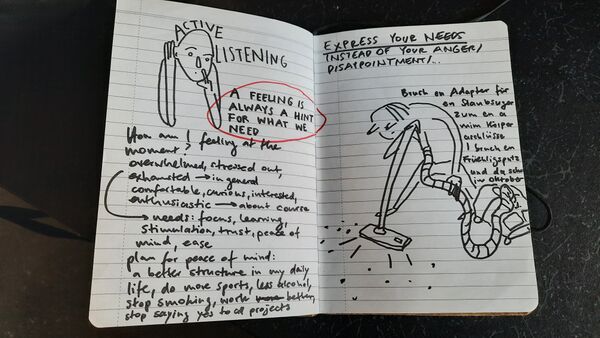 ACTIVE
LISTENING
A FEELING IS
ALWAYS A HINT
FOR WHAT WE
NEED
How am I feeling at the
moment?
overwhelmed, stressed out,
exhausted → in general
comfortable, curious, interested,
enthusiastic → about course
needs: focus, learning,
stimulation, trust, peace of
mind, ease
plan for peace of mind:
a better structure in my daily
life, do more sports, less alcohol,
stop smoking, work more better,
stop saying yes to all projects
EXPRESS YOUR NEEDS
INSTEAD OF YOUR ANGER/
DISAPPOINTMENT/...
Bruch en Adapter für
en Staubsuger
zum en a
mim Körper
aschlüsse
I bruch en
Früehligsputz
und da scho
im Oktober